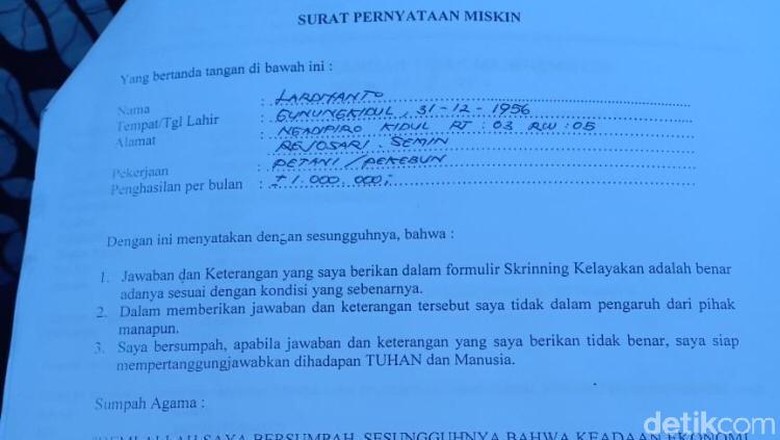 SURAT PERNYATAAN MISKIN
Yang bertanda tangan di bawah ini :
Nama : LARDIYANTO
Tempat/Tgl Lahir : GUNUNGKIDUL, 31-12-1956
Alamat : NGADIPIRO KIDUL RT : 03 RW : 05
REJOSARI. SEMIN
Pekerjaan : PETANI / PEKEBUN
Penghasilan per bulan : ± 1.000.000,-
Dengan ini menyatakan dengan sesungguhnya, bahwa :
1. Jawaban dan Keterangan yang saya berikan dalam formulir Skrinning Kelayakan adalah benar
adanya sesuai dengan kondisi yang sebenarnya.
2. Dalam memberikan jawaban dan keterangan tersebut saya tidak dalam pengaruh dari pihak
manapun.
3. Saya bersumpah, apabila jawaban dan keterangan yang saya berikan tidak benar, saya siap
mempertanggungjawabkan dihadapan TUHAN dan Manusia.
Sumpah Agama :
"DEMI ALLAH SAYA BERSUMPAH, SESUNGGUHNYA BAHWA KEADAAN EKONOMI
detikcom